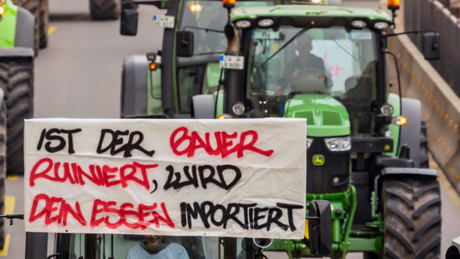 IST DER BAUER
RUINIERT, WIRD
DEIN ESSEN IMPORTIERT